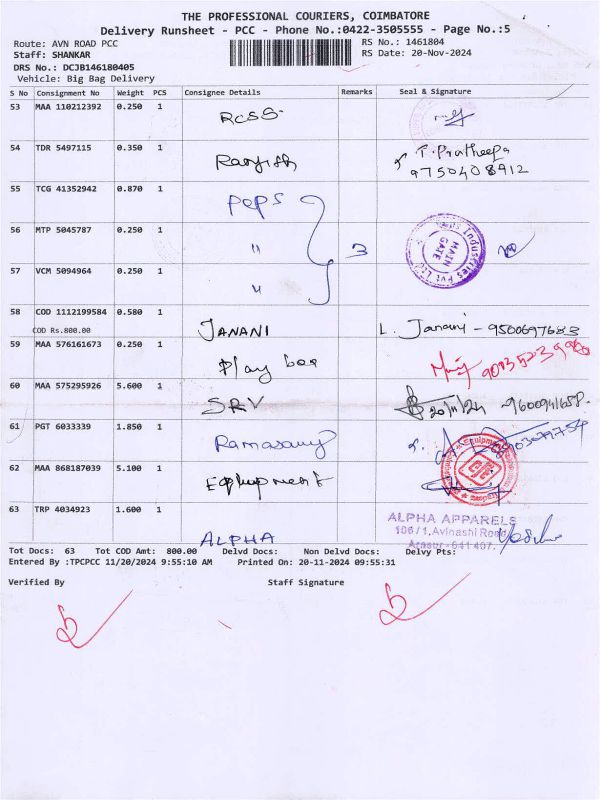 THE PROFESSIONAL COURIERS, COIMBATORE
Delivery Runsheet - PCC - Phone No.:0422-3505555 - Page No.:5
Route: AVN ROAD PCC RS No.: 1461804
Staff: SHANKAR RS Date: 20-Nov-2024
DRS No.: DCJB146180405
Vehicle: Big Bag Delivery
S No Consignment No Weight PCS Consignee Details Remarks Seal & Signature
53 MAA 110212392 0.250 1 RCSS
54 TDR 5497115 0.350 1 Ranjith T. Pratheepa
9750408912
55 TCG 41352942 0.870 1 Peps
56 MTP 5045787 0.250 1 " 3 MAIN GATE
57 VCM 5094964 0.250 1 "
58 COD 1112199584 0.580 1 JANANI L. Janani - 9500697683
COD Rs.800.00
59 MAA 576161673 0.250 1 Play
60 MAA 575295926 5.600 1 SRV 20/11/24 - 9600941658.
61 PGT 6033339 1.850 1 Ramasamy
62 MAA 868187039 5.100 1 Equipment
63 TRP 4034923 1.600 1 ALPHA
ALPHA APPARELS
106/1, Avinashi Road
Arasur - 641 407.
Tot Docs: 63 Tot COD Amt: 800.00 Delvd Docs: Non Delvd Docs: Delvy Pts:
Entered By :TPCPCC 11/20/2024 9:55:10 AM Printed On: 20-11-2024 09:55:31
Verified By Staff Signature